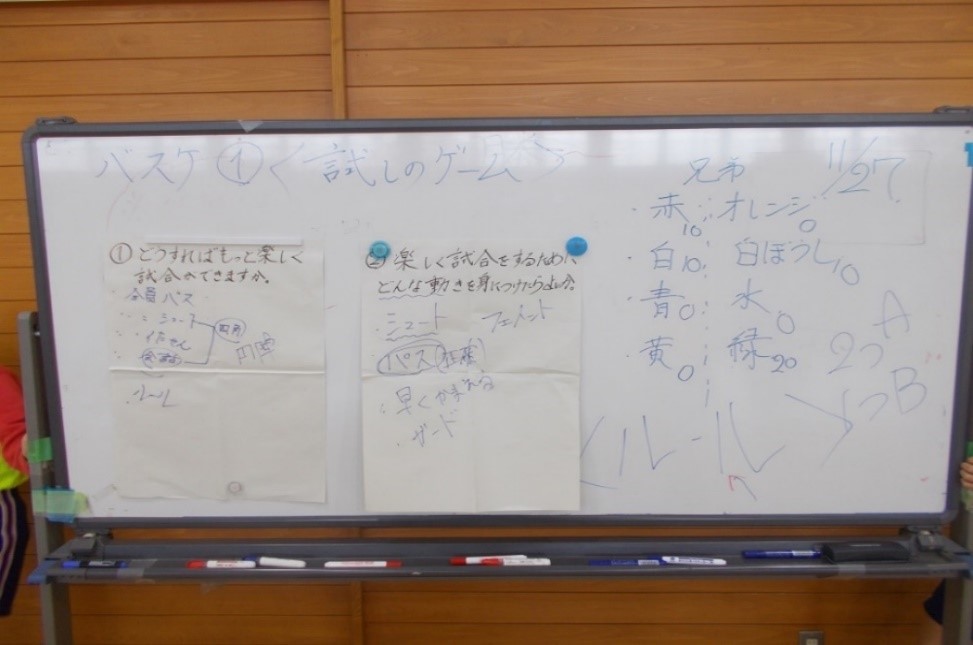 バスケ ① 試しのゲーム
11/27
兄弟
赤 10 オレンジ 0
白 10 白ぼうし 10
青 0 水 0
黄 0 緑 20
2つ A
B
ルール
① どうすればもっと楽しく
試合ができますか。
全員パス
シュート
ルール
② 楽しく試合をするために
どんな動きを身につけたら良いか。
シュート フェイント
パス
早く
ガード